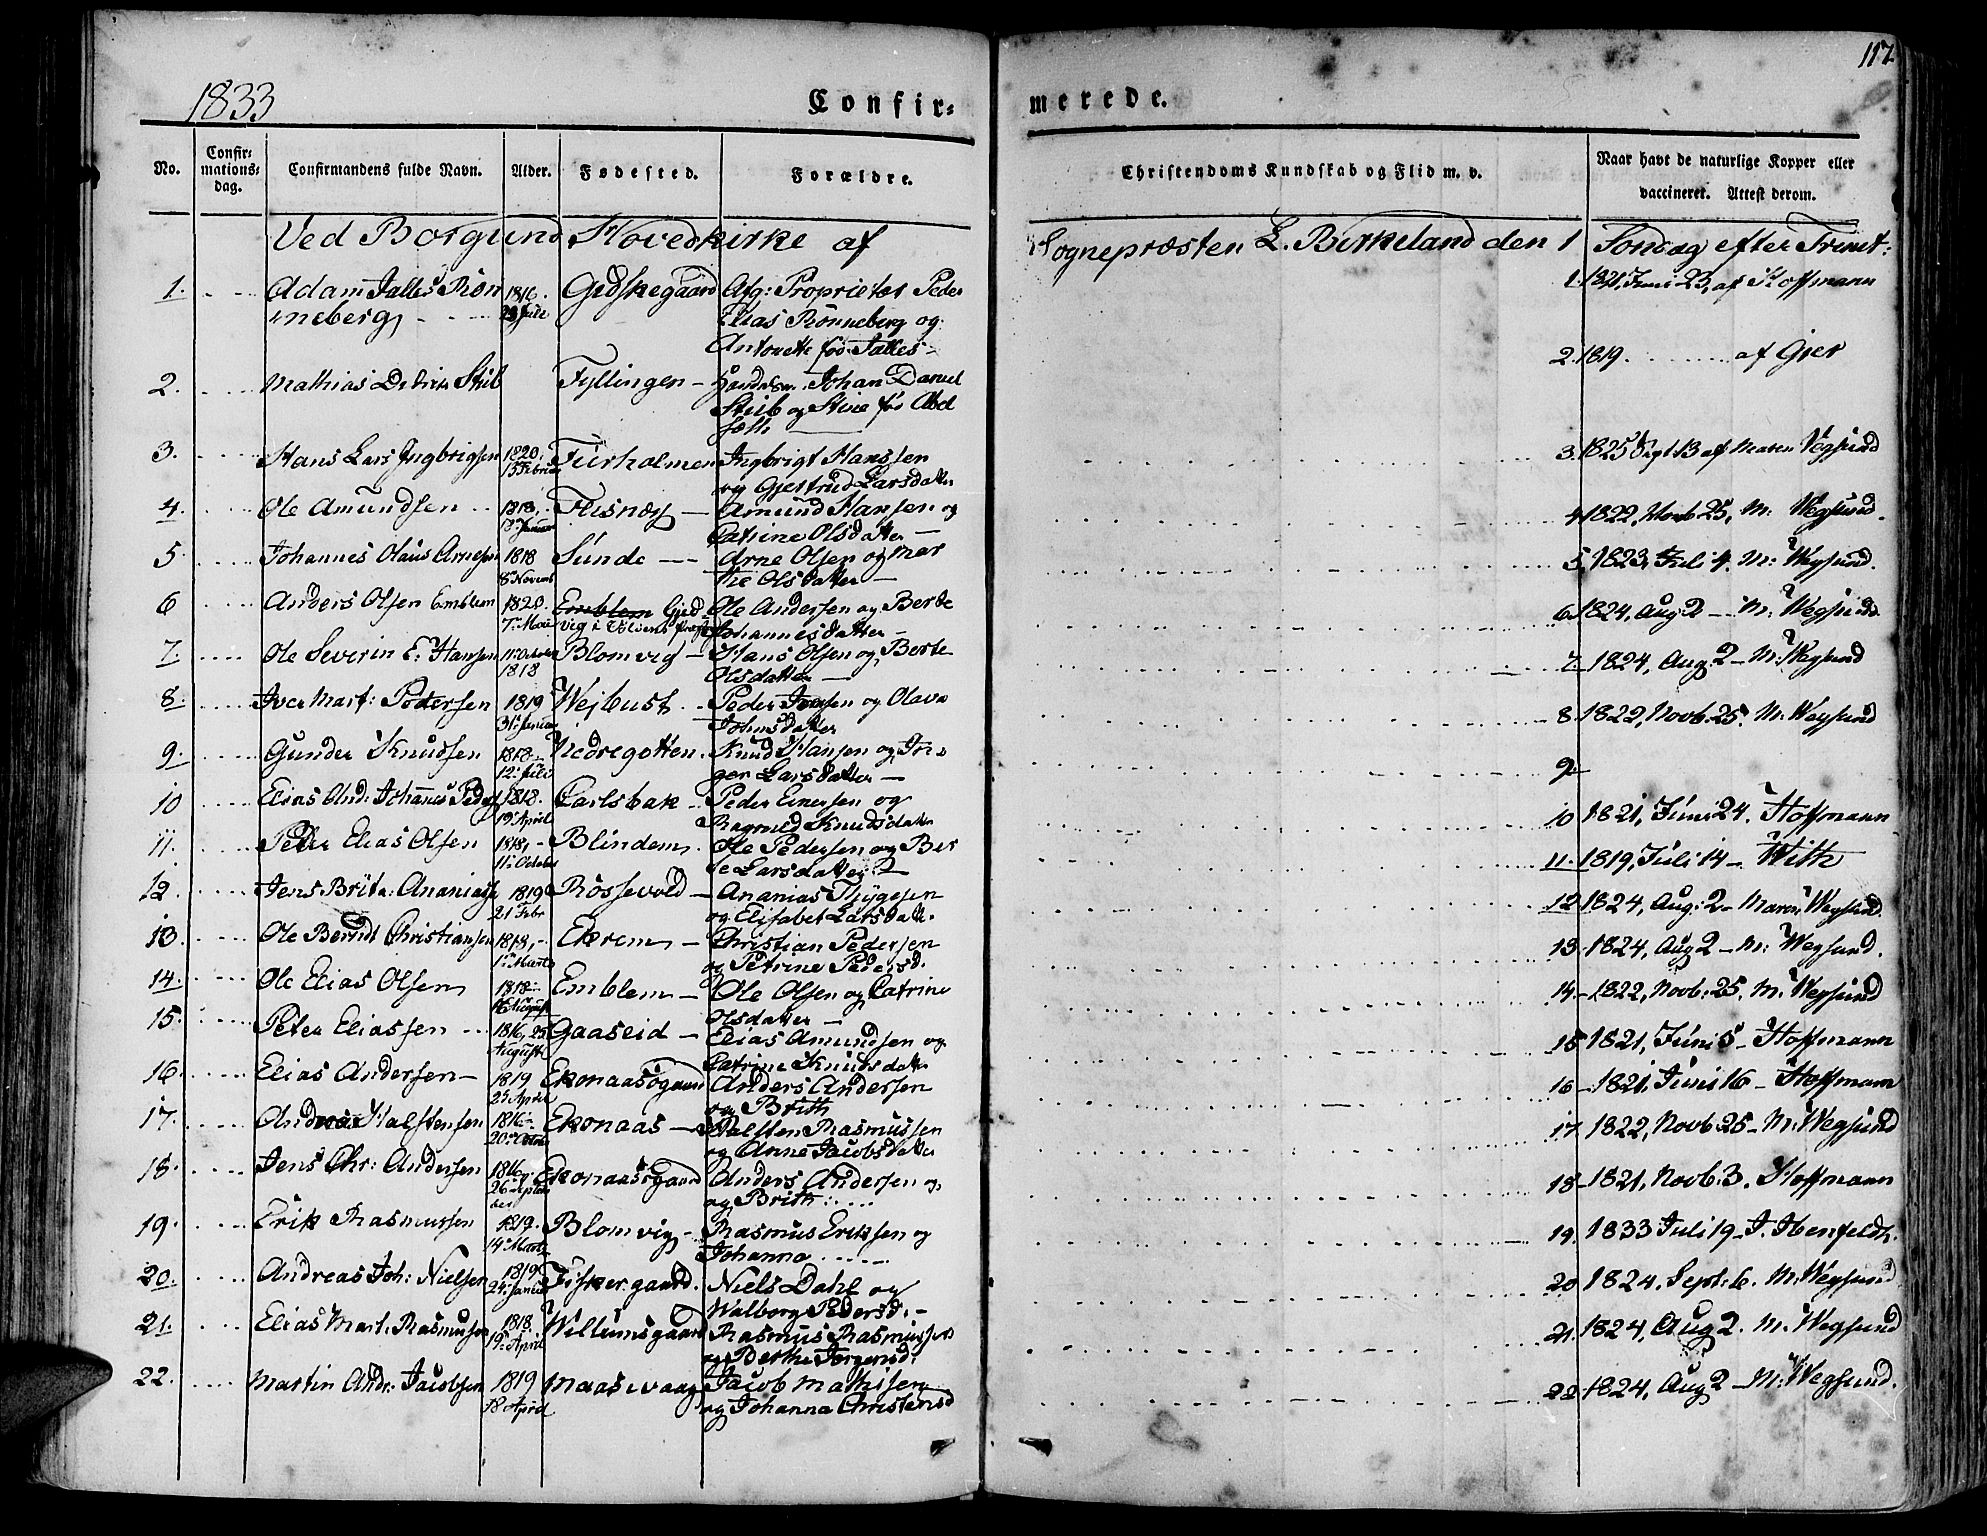 117
1833
Confir-
merede.
No.
Confir-
mations-
dag.
Confirmandens fulde Navn.
Alder.
Fødested.
Forældre.
Christendoms Kundskab og Flid m. v.
Naar havt de naturlige Kopper eller
vaccineret. Attest derom.
Ved Borgund Hovedkirke af Sognepræsten L. Birkeland den 1 Søndag efter Trinit:
1. Adam Jalles Røn 1816. Gidskegaard Afg: Proprietær Peder 1. 1821, Juni 23, af Hoffmann
neberg Juli Elias Rønneberg og
Antonette fød Jalles
2. Mathias Stub Fyllingen Johan Daniel 2. 1819. af Gjer
Stub og Stine fød
3. Hans Lars Ingbrigtsen 1820. Furholmen Ingbrigt Hanssen 3. 1825 Sept 13 af Maren Vegsund
15 Februar og Gjertrud Larsdatter
4. Ole Amundsen 1818, Flisnæs Amund Hansen og 4. 1822, Novb 25, M: Wegsund.
Januar Catrine Olsdatter
5 Johannes Olaus Arnesen 1818 Sunde Arne Olsen og Mar 5. 1823, Juli 4. M: Wegsund.
8 Novemb the Olsdatter
6 Anders Olsen Emblem 1820. Emblem Gjed Ole Andersen og Berte 6. 1824, Aug 2 M: Wegsund
7. Mai vig i Johannesdatter
7. Ole Severin E: Hansen 11 October Blomvig Hans Olsen og Berte 7. 1824, Aug 2 M: Wegsund
1818 Olsdatter
8. Iver Mart: Pedersen 1819 Wejbust Peder Iversen og Olava 8. 1822, Novb. 25. M: Wegsund
31 Januar Johnsdatter
9. Gunder Knudsen 1818 Nedregotten Knud Hansen og In 9.
12 Juli ger Larsdatter
10 Elias And: Johannes Peders 1818. Carlsbak Peder Einersen og 10 1821, Juni 24. Hoffmann
19 April Ragnild Knudsdatter
11. Peder Elias Olsen 1818, Blindem Ole Pedersen og Ber 11. 1819, Juli 14 With
11 October te Larsdatter
12. Jens Brite Ananiasse 1819 Røssevold Ananias Thygesen 12. 1824, Aug: 2 Maren Wegsund.
21 Febr og Elisabet Larsdatt.
13. Ole Berndt Christiansen 1818, Ekrem Christian Pedersen 13. 1824, Aug 2 M: Wegsund.
1 Marts og Petrine Pedersd.
14. Ole Elias Olsen 1818 Emblem Ole Olsen og Catrine 14. 1822, Novb. 25. M. Wegsund
16 August Olsdatter
15. Peter Eliassen 1816, 25 Gaaseid Elias Amundsen og 15 1821, Juni 5 Hoffmann
August Catrine Knudsdatter
16. Elias Andersen 1819 Ekonaasgaard Anders Andersen 16 1821, Juni 16 Hoffmann
25 April og Brith
17. Halstensen 1816 Ekonaas Halsten Rasmussen 17. 1822, Novb: 25 M: Wegsund
20 og Anne Jacobsdatter
18. Jens Chr: Andersen 1816, Ekonaasgaard Anders Andersen og 18 1821, Novb. 3. Hoffmann
26 Septem og Brith
ber
19. Erik Rasmussen 1819. Blomvig Rasmus Eriksen og 19. 1833 Juli 19 J. Ibenfeldt.
14 Marts Johanna
20. Andreas Joh: Nielsen 1819 Fiskergaard. Niels Dahl og 20 1824. Sept: 6. M: Wegsund
24 Januar Walborg Pedersd.
21. Elias Mart. Rasmusen 1818. Willumsgaard Rasmus Rasmussen 21. 1824, Aug 2. M. Wegsund
19 April og Berthe Jørgensd.
22. Martin Andr. Jacobsen 1819 Maaswaag Jacob Mathisen 22. 1824, Aug 2 M: Wegsund.
18 April og Johanna Christensd